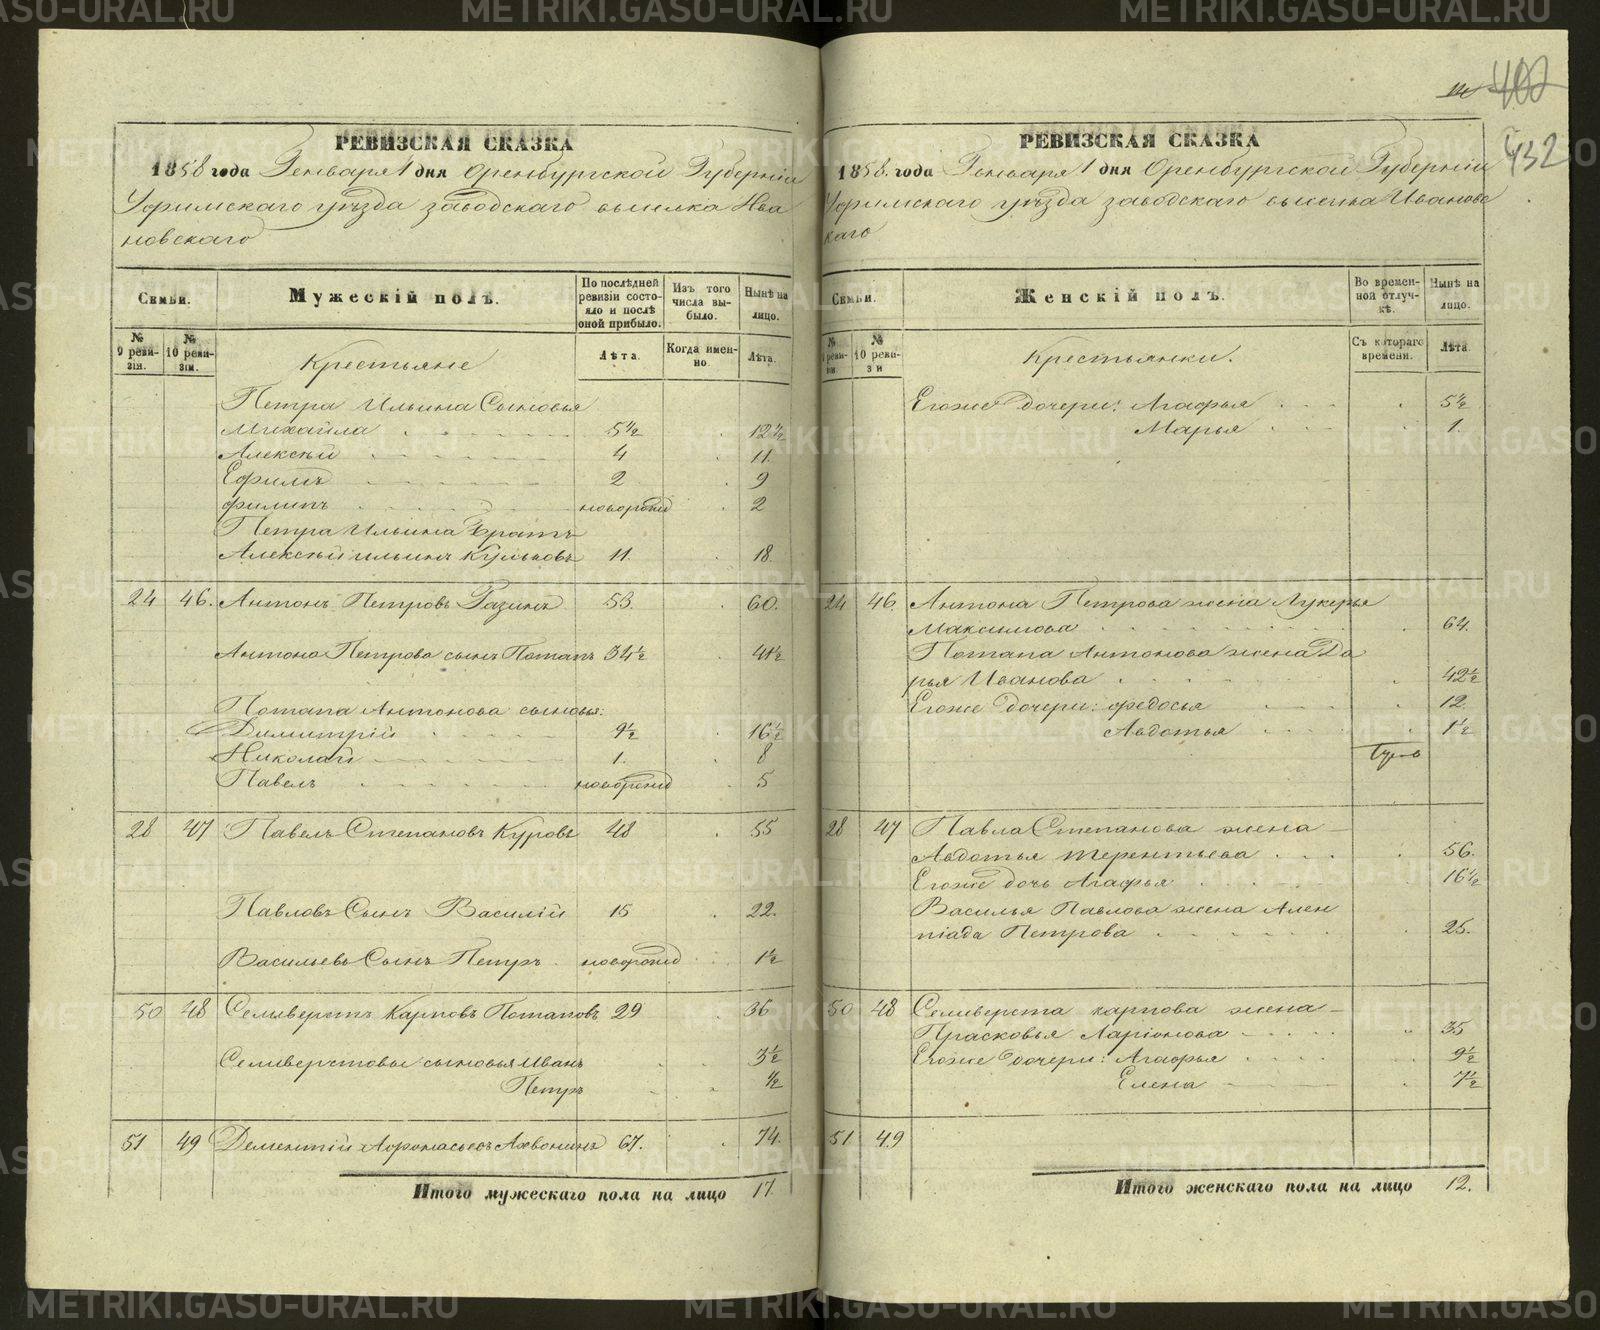 402
432
РЕВИЗСКАЯ СКАЗКА
1858 года Генваря 1 дня Оренбургской Губерніи
Уфимскаго уѣзда заводскаго выселка Ива
новскаго
Семьи.
Мужескій полъ.
По послѣдней ревизіи состояло и послѣ оной прибыло.
Изъ того числа выбыло.
Нынѣ на лицо.
№ 9 ревизіи.
№ 10 ревизіи.
Крестьяне
Лѣта.
Когда именно.
Лѣта.
Петра Ильина Сыновья
Михайла 5½ 12½
Алексѣй 4 11
Ефимъ 2 9
Филипъ новорожд 2
Петра Ильина братъ
Алексѣй Ильинъ Кульковъ 11. 18.
24 46. Антонъ Петровъ Разинъ 53. 60.
Антона Петрова сынъ Потапъ 34½ 41½
Потапа Антонова сыновья:
Димитрій 9½ 16½
Николай 1. 8
Павелъ новорожд 5
28 47 Павелъ Степановъ Куровъ 48 55
Павловъ Сынъ Василій 15 22.
Васильевъ Сынъ Петръ новорожд 1½
50 48 Селиверстъ Карповъ Потаповъ 29 36
Селиверстовы сыновья Иванъ 3½
Петръ ½
51 49 Дементій Афонасьевъ 67. 74.
Итого мужескаго пола на лицо 17.
РЕВИЗСКАЯ СКАЗКА
1858. года Генваря 1 дня Оренбургской Губерніи
Уфимскаго уѣзда заводскаго выселка Ивановс
каго
Семьи.
Женскій полъ.
Во временной отлучкѣ.
Нынѣ на лицо.
№ 9 ревизіи.
№ 10 ревизіи
Крестьянки.
Съ котораго времени.
Лѣта.
Егоже дочери: Агафья 5½
Марья 1.
24 46. Антона Петрова жена Лукерья
Максимова 64.
Потапа Антонова жена Да
рья Иванова 42½
Егоже дочери: Федосья 12.
Авдотья 1½
28 47 Павла Степанова жена
Авдотья Терентьева 56.
Егоже дочь Агафья 16½
Василья Павлова жена Алем
піада Петрова 25.
50 48 Селиверста Карпова жена
Прасковья Ларіонова 35
Егоже дочери: Агафья 9½
Елена 7½
51 49
Итого женскаго пола на лицо 12.
METRIKI.GASO-URAL.RU